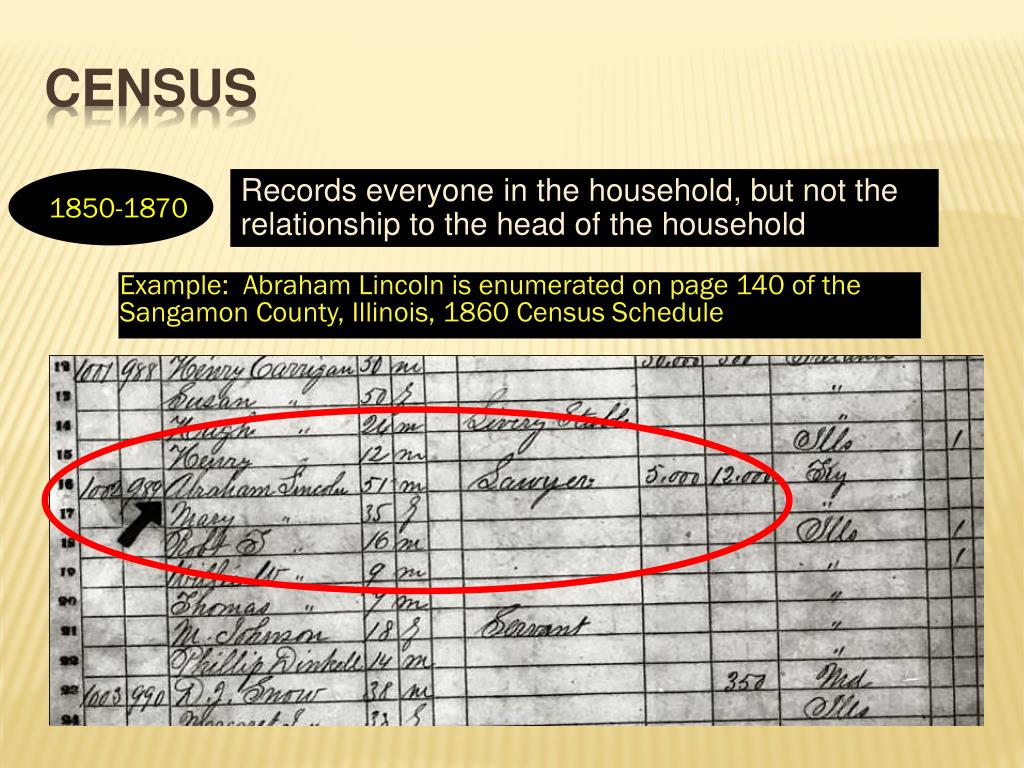 CENSUS
1850-1870
Records everyone in the household, but not the
relationship to the head of the household
Example: Abraham Lincoln is enumerated on page 140 of the
Sangamon County, Illinois, 1860 Census Schedule
12 1001 988 Henry Carrigan 50 m 30.000
13 Susan " 50 f "
14 Hugh " 21 m Livery Stable "
15 Henry 12 m Ills 1
16 1002 989 Abraham Lincoln 51 m Lawyer 5.000 12.000 Ky
17 Mary " 35 f "
18 Robt T " 16 m Ills 1
19 " 9 m " 1
20 Thomas " 7 m "
21 M. Johnson 18 f Servant "
22 Phillip Dinkell 14 m "
23 1003 990 D. J. Snow 38 m 350 Md
24 Margaret 33 f Ills